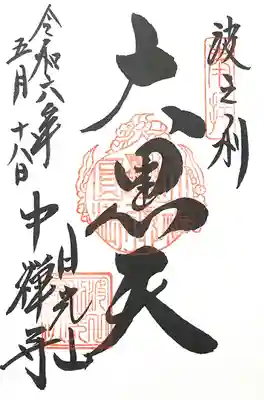 波之利
大黒天
日光山
中禅寺
令和六年
五月十八日